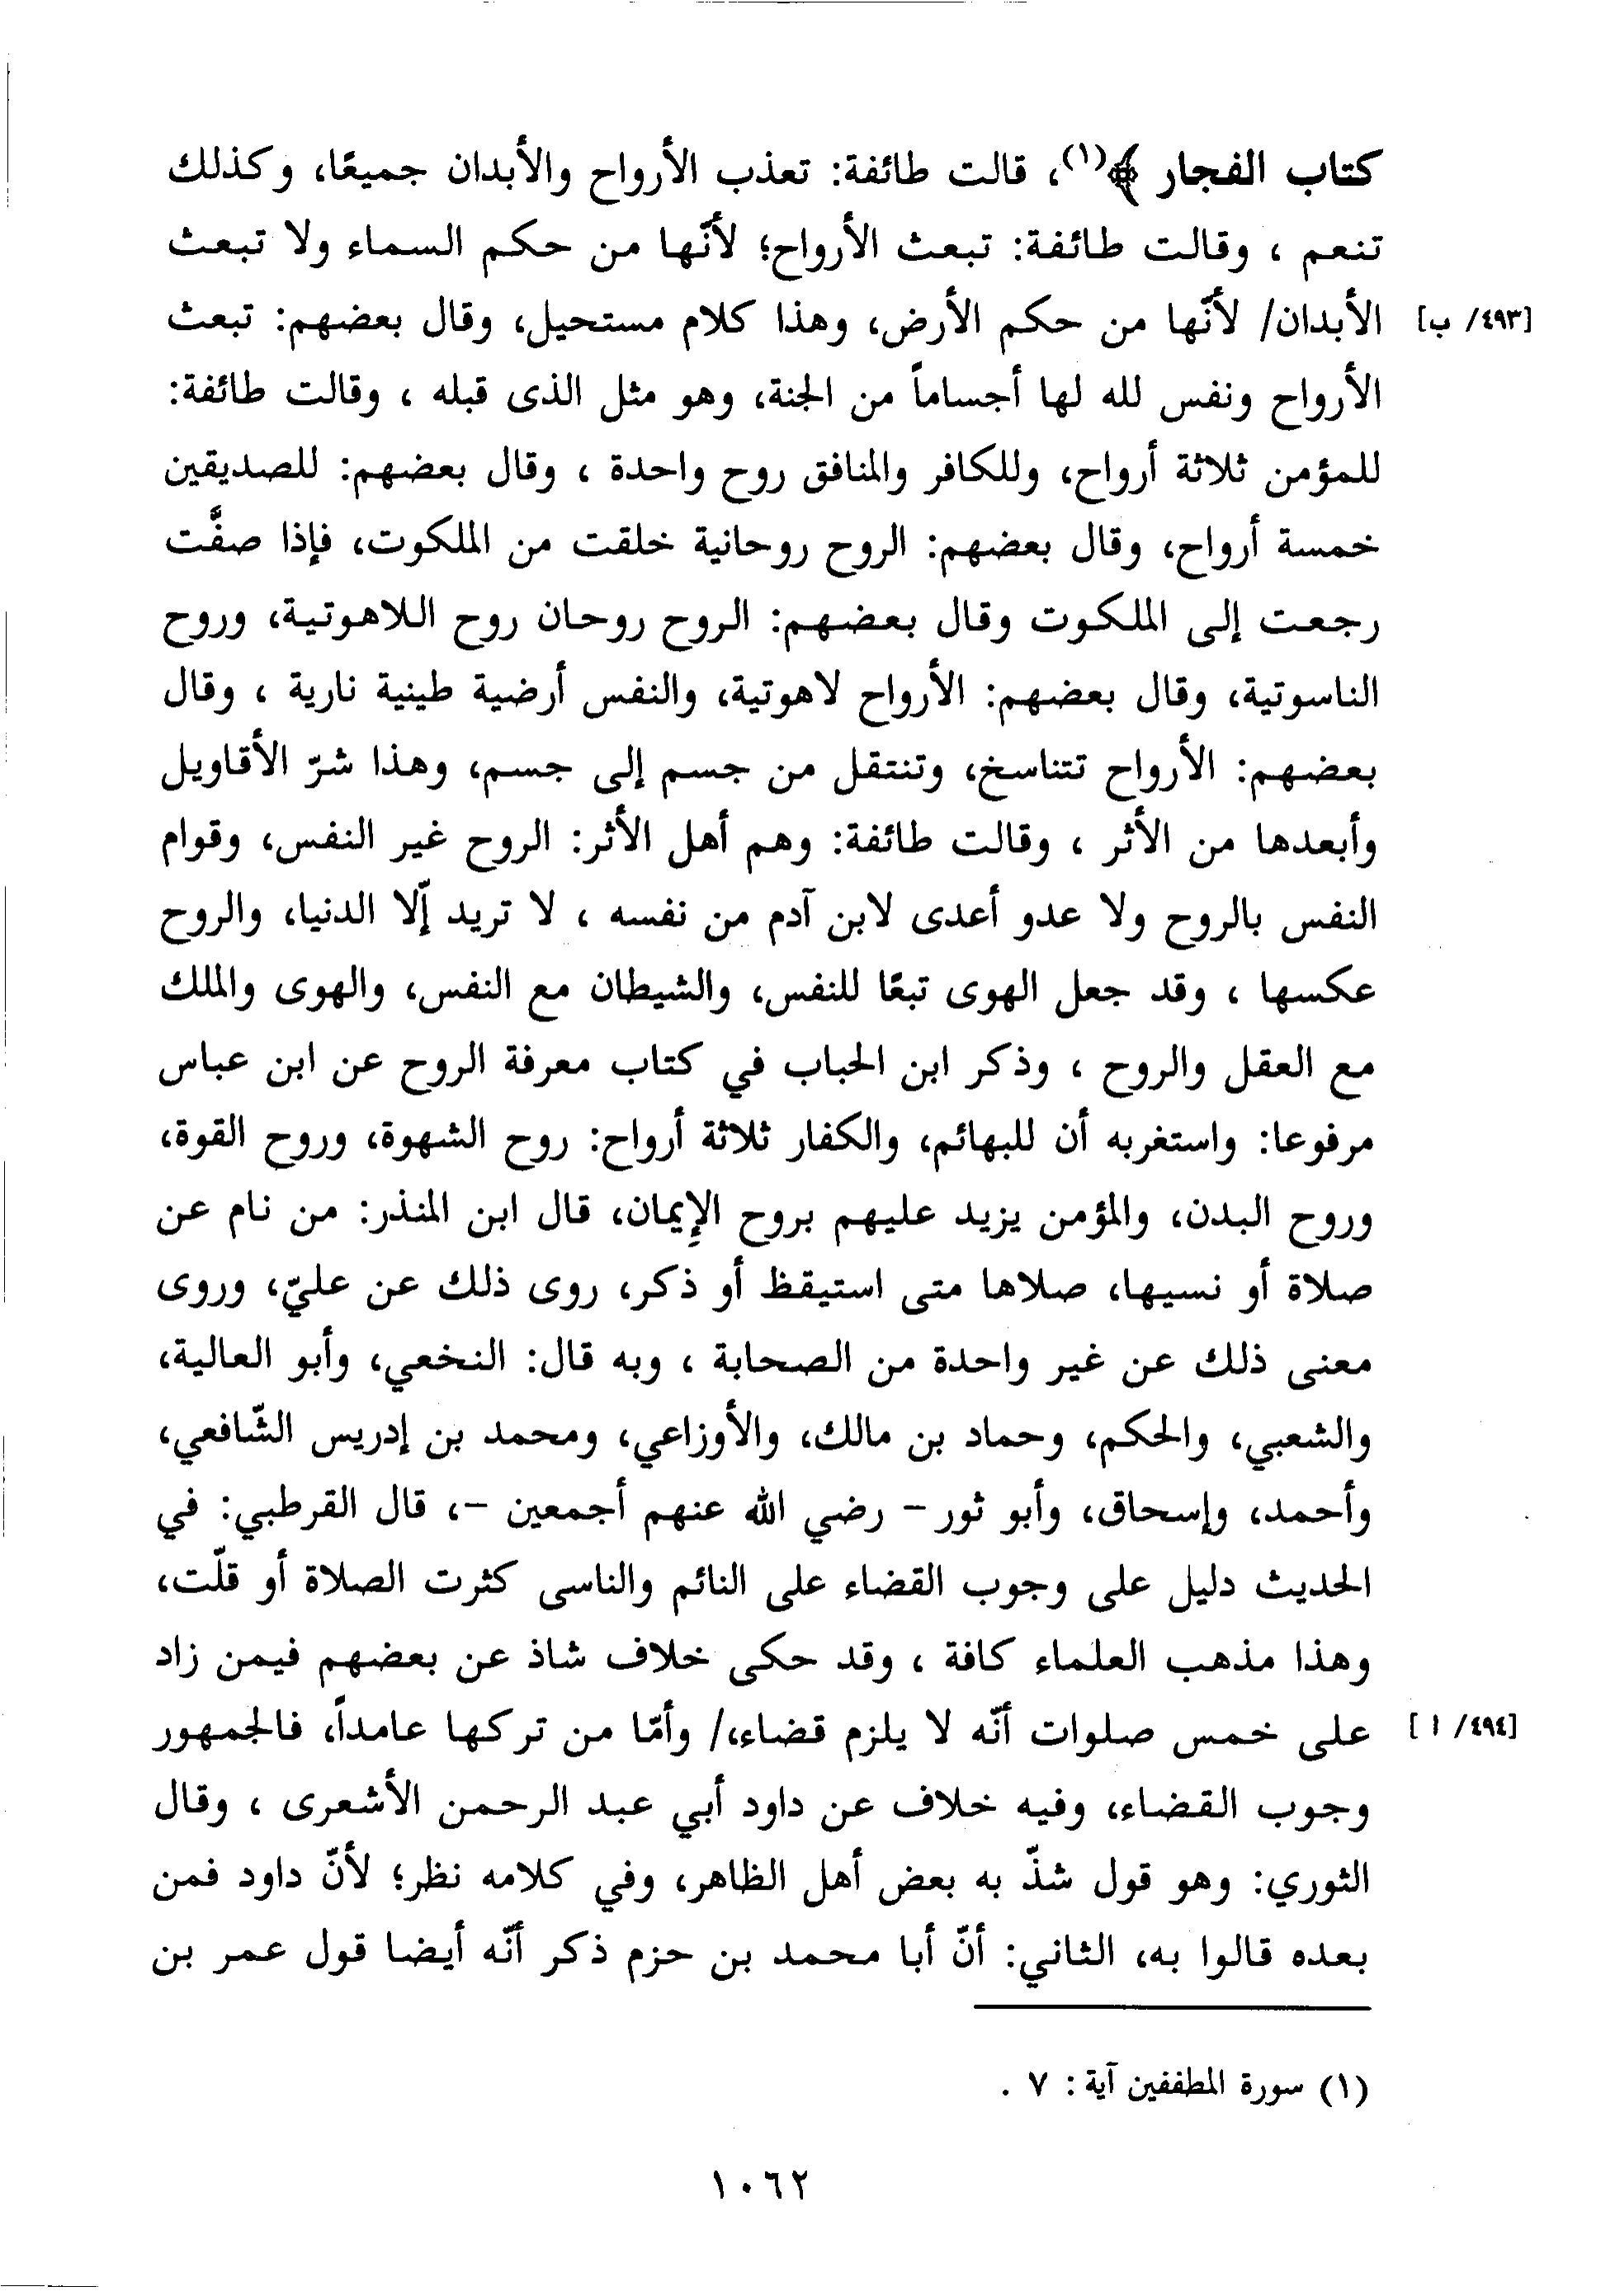 كتاب الفجار ﴾(١)، قالت طائفة: تعذب الأرواح والأبدان جميعًا، وكذلك
تنعم ، وقالت طائفة: تبعث الأرواح؛ لأنّها من حكم السماء ولا تبعث
[٤٩٣/ ب] الأبدان/ لأنّها من حكم الأرض، وهذا كلام مستحيل، وقال بعضهم: تبعث
الأرواح ونفس لله لها أجساماً من الجنة، وهو مثل الذى قبله ، وقالت طائفة:
للمؤمن ثلاثة أرواح، وللكافر والمنافق روح واحدة ، وقال بعضهم: للصديقين
خمسة أرواح، وقال بعضهم: الروح روحانية خلقت من الملكوت، فإذا صفَّت
رجعت إلى الملكوت وقال بعضهم: الروح روحان روح اللاهوتية، وروح
الناسوتية، وقال بعضهم: الأرواح لاهوتية، والنفس أرضية طينية نارية ، وقال
بعضهم: الأرواح تتناسخ، وتنتقل من جسم إلى جسم، وهذا شرّ الأقاويل
وأبعدها من الأثر ، وقالت طائفة: وهم أهل الأثر: الروح غير النفس، وقوام
النفس بالروح ولا عدو أعدى لابن آدم من نفسه ، لا تريد إّلا الدنيا، والروح
عكسها ، وقد جعل الهوى تبعًا للنفس، والشيطان مع النفس، والهوى والملك
مع العقل والروح ، وذكر ابن الحباب في كتاب معرفة الروح عن ابن عباس
مرفوعا: واستغربه أن للبهائم، والكفار ثلاثة أرواح: روح الشهوة، وروح القوة،
وروح البدن، والمؤمن يزيد عليهم بروح الإيمان، قال ابن المنذر: من نام عن
صلاة أو نسيها، صلاها متى استيقظ أو ذكر، روى ذلك عن عليّ، وروى
معنى ذلك عن غير واحدة من الصحابة ، وبه قال: النخعي، وأبو العالية،
والشعبي، والحكم، وحماد بن مالك، والأوزاعي، ومحمد بن إدريس الشّافعي،
وأحمد، وإسحاق، وأبو ثور - رضي الله عنهم أجمعين -، قال القرطبي: في
الحديث دليل على وجوب القضاء على النائم والناسى كثرت الصلاة أو قلّت،
وهذا مذهب العلماء كافة ، وقد حكى خلاف شاذ عن بعضهم فيمن زاد
[٤٩٤/ ا] على خمس صلوات أنّه لا يلزم قضاء،/ وأمّا من تركها عامداً، فالجمهور
وجوب القضاء، وفيه خلاف عن داود أبي عبد الرحمن الأشعرى ، وقال
الثوري: وهو قول شذّ به بعض أهل الظاهر، وفي كلامه نظر؛ لأنّ داود فمن
بعده قالوا به، الثاني: أنّ أبا محمد بن حزم ذكر أنّه أيضا قول عمر بن
(١) سورة المطففين آية : ٧ .
١٠٦٢